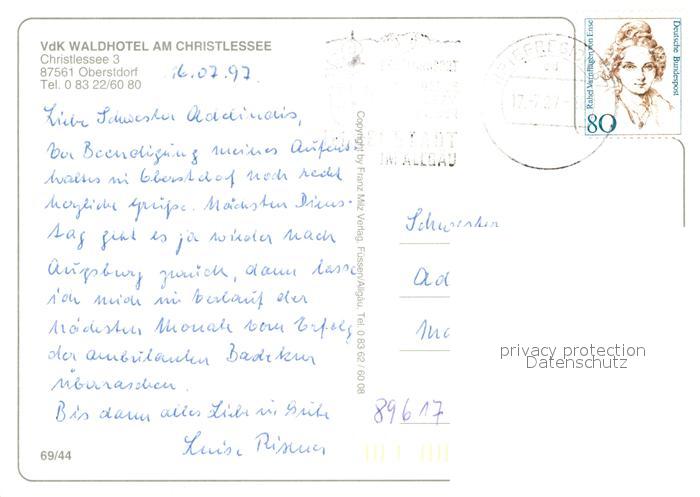 VdK WALDHOTEL AM CHRISTLESSEE
Christlessee 3
87561 Oberstdorf
Tel. 0 83 22/60 80
16.07.97.
Liebe Schwester
vor Beendigung meines Aufent
haltes in Oberstdorf noch recht
herzliche Grüße. Nächsten Diens-
tag geht es ja wieder nach
Augsburg zurück, dann lasse
ich mich im Verlauf der
nächsten Monate vom Erfolg
der ambulanten Badekur
überraschen.
Bis dann alles Liebe u. Gute
Luise
69/44
Copyright by Franz Milz Verlag, Füssen/Allgäu, Tel. 0 83 62 / 60 08
STADT
IM ALLGÄU
Deutsche Bundespost
Rahel Varnhagen von Ense
80
Schwester
Ad
89617
privacy protection
Datenschutz